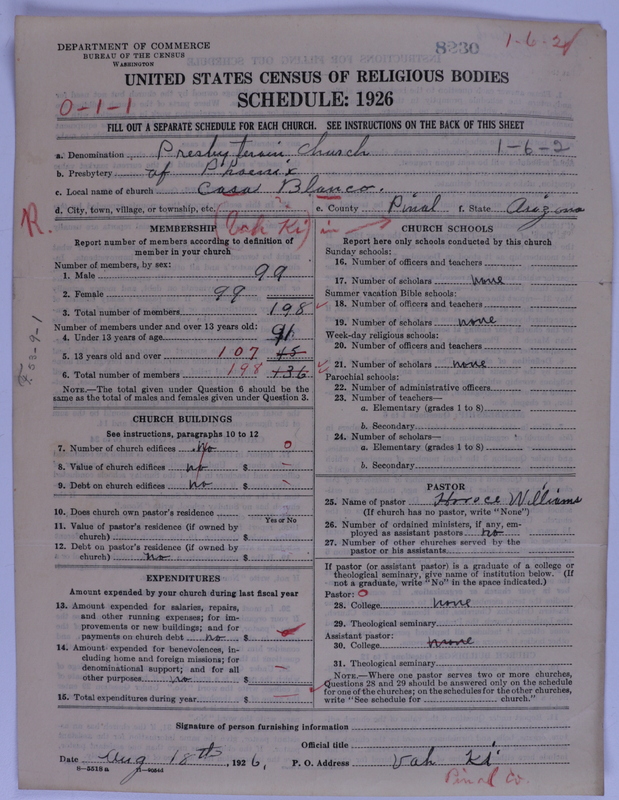 DEPARTMENT OF COMMERCE
BUREAU OF THE CENSUS
WASHINGTON
8230
1-6-2
UNITED STATES CENSUS OF RELIGIOUS BODIES
SCHEDULE: 1926
0-1-1
FILL OUT A SEPARATE SCHEDULE FOR EACH CHURCH. SEE INSTRUCTIONS ON THE BACK OF THIS SHEET
a. Denomination Presbyterain Church 1-6-2
b. Presbytery of Phoenix
c. Local name of church Casa Blanco.
d. City, town, village, or township, etc. (Vah Ki) in e. County Pinal f. State Arizona
R.
MEMBERSHIP
Report number of members according to definition of member in your church
Number of members, by sex:
1. Male 99
2. Female 99
3. Total number of members 198
Number of members under and over 13 years old:
4. Under 13 years of age 91
5. 13 years old and over 107 45
6. Total number of members 198 136
NOTE.—The total given under Question 6 should be the same as the total of males and females given under Question 3.
CHURCH BUILDINGS
See instructions, paragraphs 10 to 12
7. Number of church edifices No 0
8. Value of church edifices no $ —
9. Debt on church edifices no $ —
10. Does church own pastor's residence
Yes or No
11. Value of pastor's residence (if owned by church) $
12. Debt on pastor's residence (if owned by church) no $
EXPENDITURES
Amount expended by your church during last fiscal year
13. Amount expended for salaries, repairs, and other running expenses; for improvements or new buildings; and for payments on church debt no $
14. Amount expended for benevolences, including home and foreign missions; for denominational support; and for all other purposes no $ —
15. Total expenditures during year $ —
CHURCH SCHOOLS
Report here only schools conducted by this church
Sunday schools:
16. Number of officers and teachers
17. Number of scholars none
Summer vacation Bible schools:
18. Number of officers and teachers
19. Number of scholars none
Week-day religious schools:
20. Number of officers and teachers
21. Number of scholars none
Parochial schools:
22. Number of administrative officers
23. Number of teachers—
a. Elementary (grades 1 to 8)
b. Secondary
24. Number of scholars—
a. Elementary (grades 1 to 8)
b. Secondary
PASTOR
25. Name of pastor Horace Williams
(If church has no pastor, write "None")
26. Number of ordained ministers, if any, employed as assistant pastors no
27. Number of other churches served by the pastor or his assistants
If pastor (or assistant pastor) is a graduate of a college or theological seminary, give name of institution below. (If not a graduate, write "No" in the space indicated.)
Pastor: 0
28. College none
29. Theological seminary
Assistant pastor:
30. College none
31. Theological seminary
NOTE.—Where one pastor serves two or more churches, Questions 28 and 29 should be answered only on the schedule for one of the churches; on the schedules for the other churches, write "See schedule for church."
Signature of person furnishing information
Official title
Date Aug 18th, 1926, P. O. Address Vah Ki
8-5518a
Pinal Co.